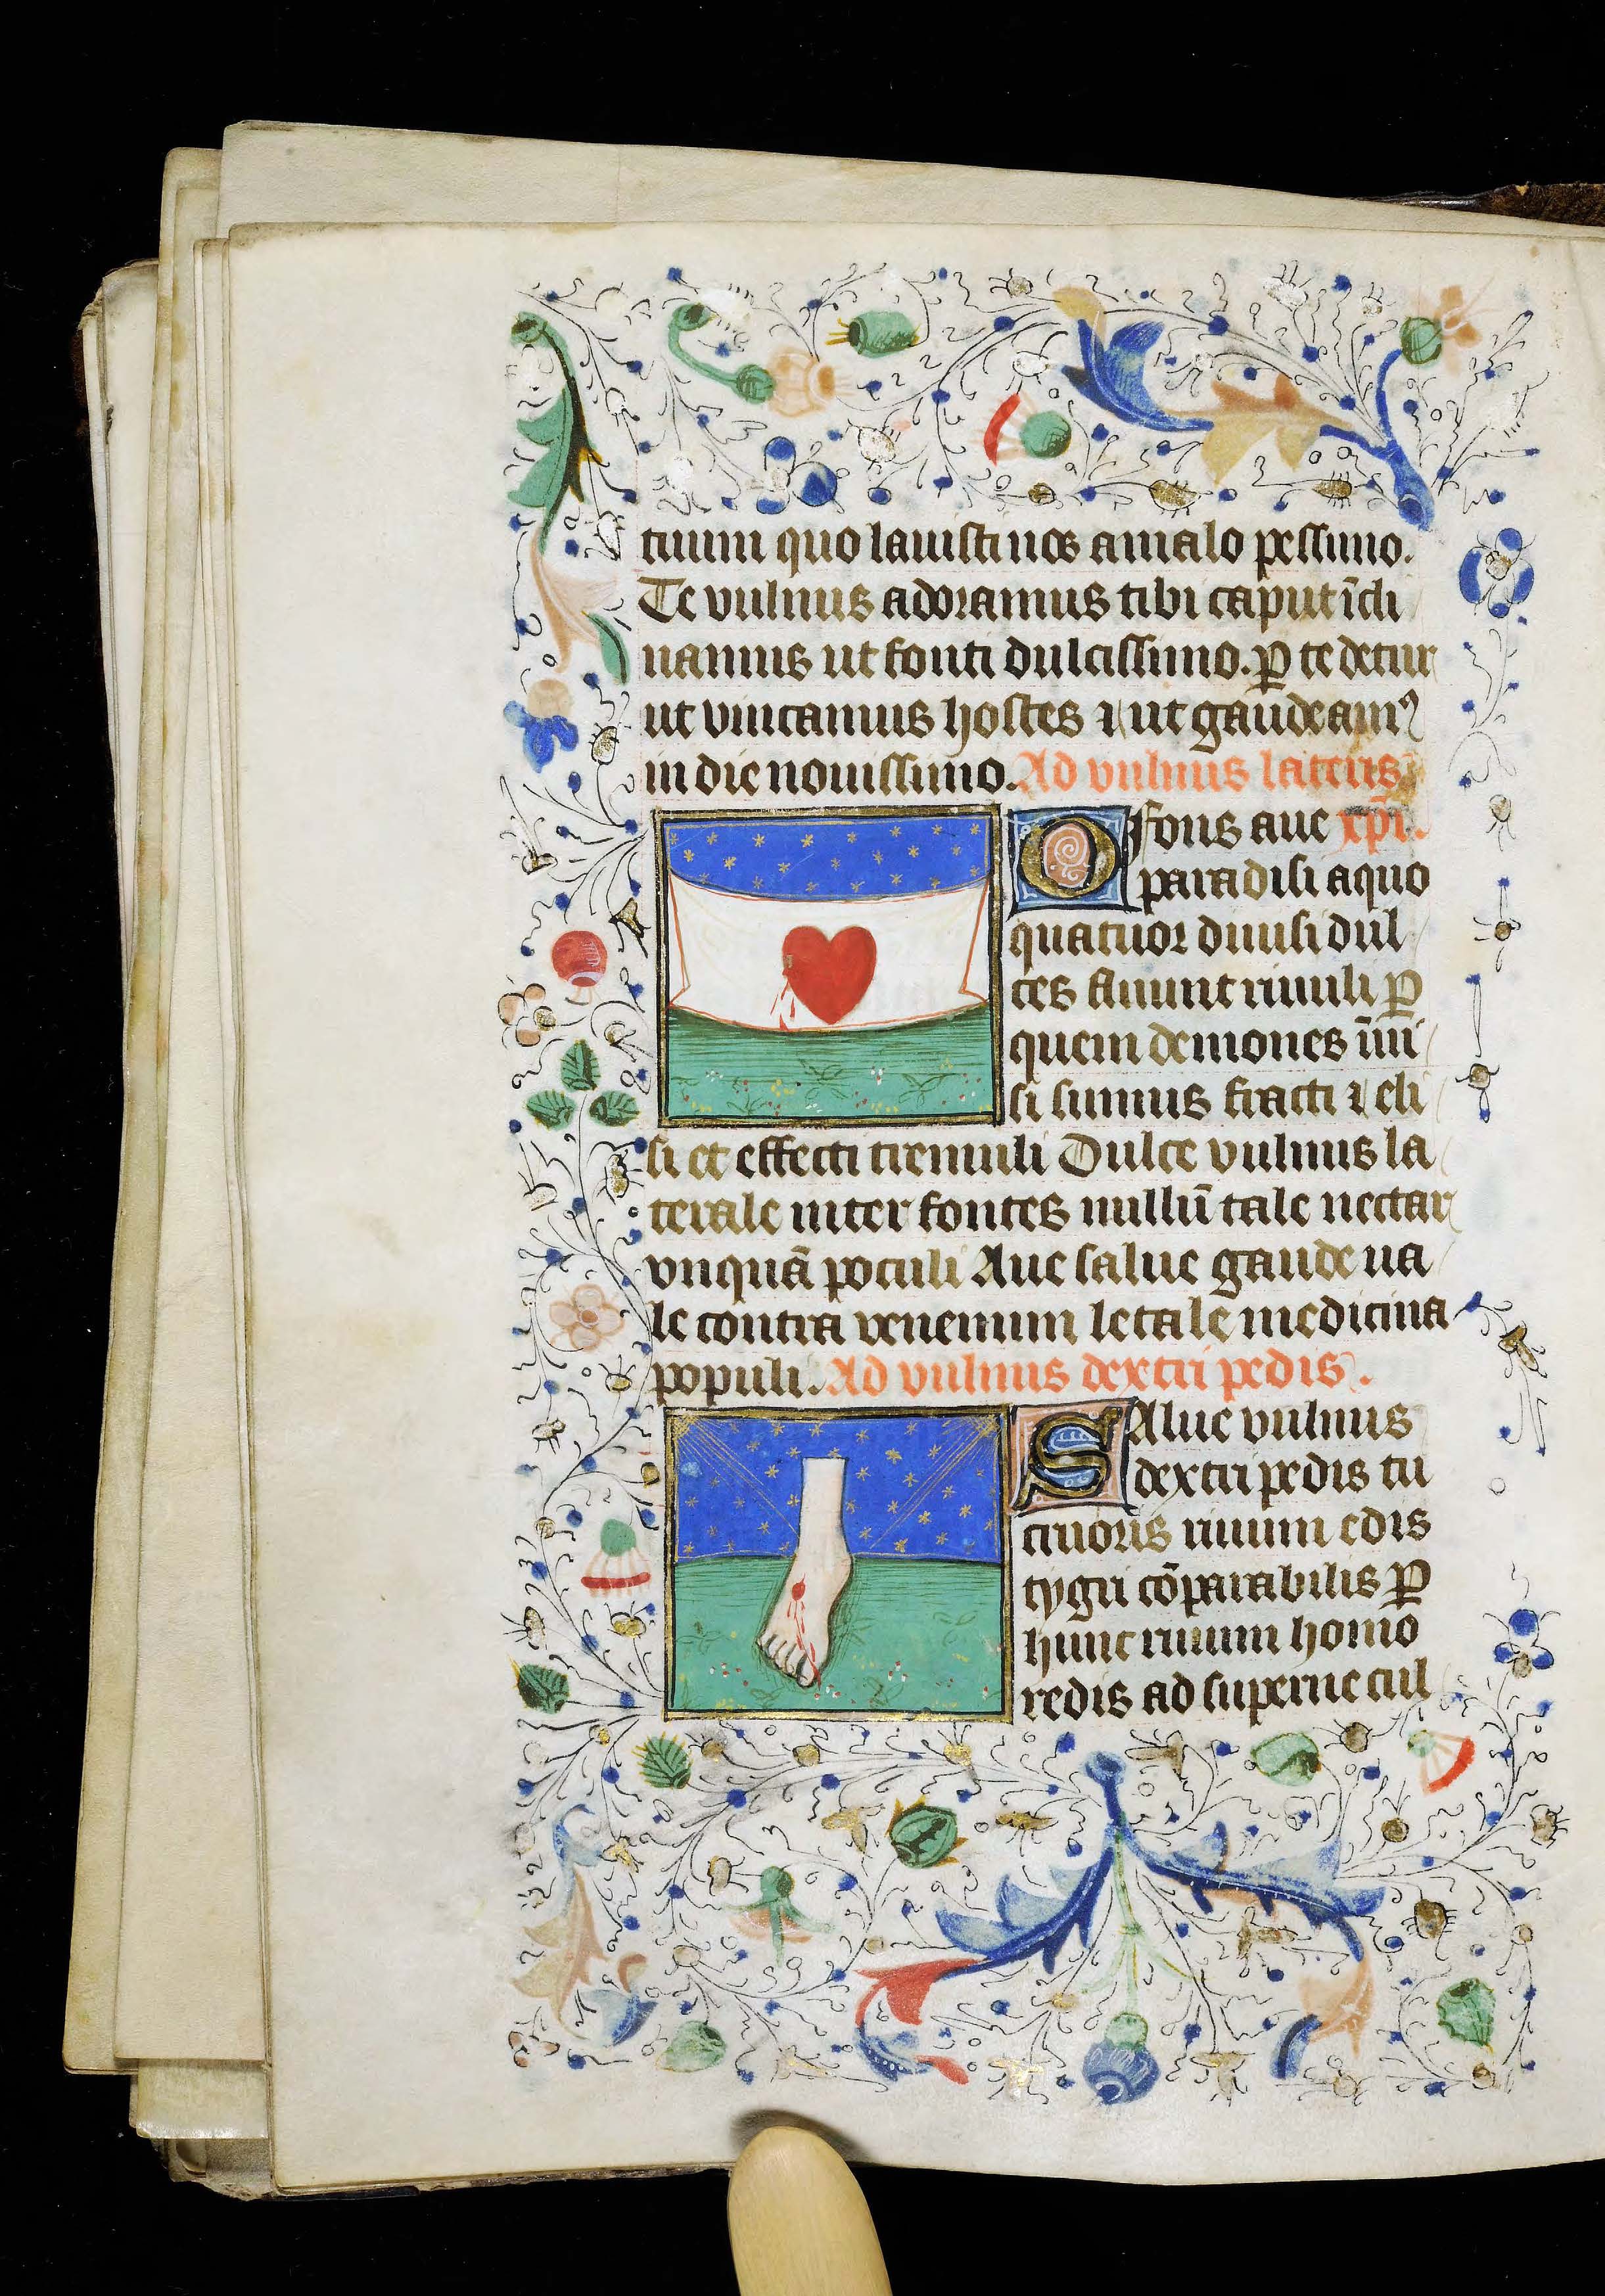 tuum quo lauisti nos a malo pessimo.
Te vulnus adoramus tibi caput īcli
namus ut fonti dulcissimo. ꝑ te detur
ut vincamus hostes ⁊ ut gaudeamꝰ
in die nouissimo. Ad vulnus lateris
O fons aue xp̄i.
paradisi a quo
quatuor diuisi dul
ces fluunt riuuli ꝑ
quem demones īui
si sumus fracti ⁊ eli
si et effecti tremuli Dulce vulnus la
terale inter fontes nullū tale nectar
vnquā poculi Aue salue gaude ua
le contra venenum letale medicina
populi. Ad vulnus dextri pedis.
SAlue vulnus
dextri pedis tu
cruoris riuum edis
tygri cōparabilis ꝑ
hunc riuum homo
redis ad superne cul